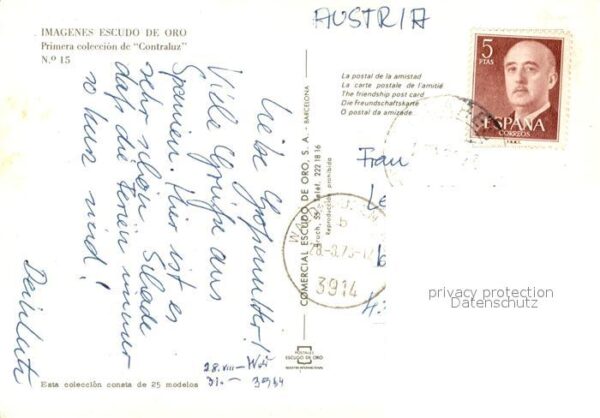 IMAGENES ESCUDO DE ORO
Primera colección de "Contraluz"
N.º 15
Liebe Großmutter!
Viele Grüße aus
Spanien. Hier ist es
sehr schön. Schade
daß die Ferien immer
so kurz sind!
28.VIII
31.
3964
Esta colección consta de 25 modelos
COMERCIAL ESCUDO DE ORO, S. A. - BARCELONA
Bruch, 55 - Teléf. 222 18 16
Reproducción prohibida
POSTALES
ESCUDO DE ORO
AUSTRIA
La postal de la amistad
La carte postale de l'amitié
The friendship post card
Die Freundschaftskarte
O postal da amizade
5
PTAS
ESPAÑA
CORREOS
Frau
3914
b
privacy protection
Datenschutz